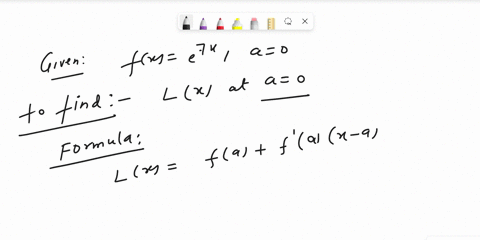 Given: f(x) = e^{7x}, a=0
to find:- L(x) at a=0
Formula:
L(x) = f(a) + f'(a) (x-a)